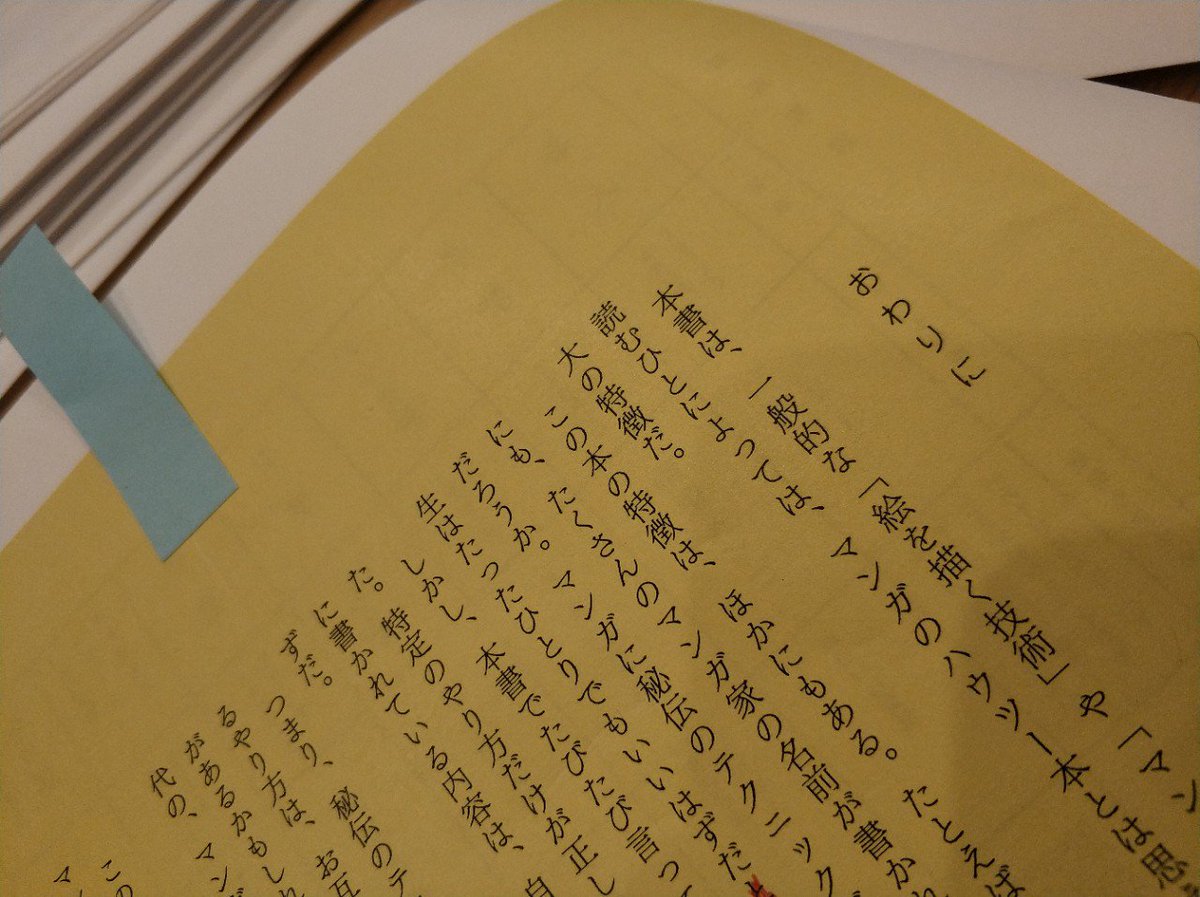 おわりに
本書は、一般的な「絵を描く技術」や「マン
読むひとによっては、マンガのハウツー本とは思
大の特徴だ。
この本の特徴は、ほかにもある。たとえば
にも、たくさんのマンガ家の名前が書かれ
だろうか。マンガに秘伝のテクニック
生はたったひとりでもいいはずだ
しかし、本書でたびたび言って
た。特定のやり方だけが正し
に書かれている内容は、自
ずだ。
つまり、秘伝のテ
るやり方は、お互
があるかもしれ
代の、マン
この
マ